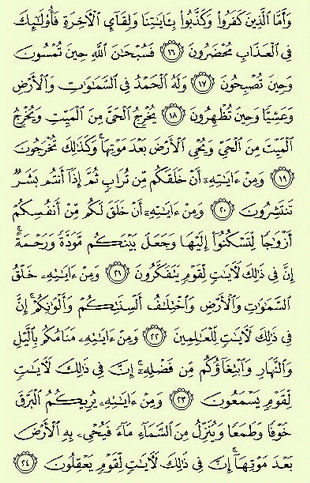 وَأَمَّا ٱلَّذِينَ كَفَرُوا۟ وَكَذَّبُوا۟ بِـَٔايَـٰتِنَا وَلِقَآئِ ٱلْـَٔاخِرَةِ فَأُو۟لَـٰٓئِكَ
فِى ٱلْعَذَابِ مُحْضَرُونَ ﴿١٦﴾ فَسُبْحَـٰنَ ٱللَّهِ حِينَ تُمْسُونَ
وَحِينَ تُصْبِحُونَ ﴿١٧﴾ وَلَهُ ٱلْحَمْدُ فِى ٱلسَّمَـٰوَٰتِ وَٱلْأَرْضِ
وَعَشِيًّا وَحِينَ تُظْهِرُونَ ﴿١٨﴾ يُخْرِجُ ٱلْحَىَّ مِنَ ٱلْمَيِّتِ وَيُخْرِجُ
ٱلْمَيِّتَ مِنَ ٱلْحَىِّ وَيُحْىِ ٱلْأَرْضَ بَعْدَ مَوْتِهَا ۚ وَكَذَٰلِكَ تُخْرَجُونَ
﴿١٩﴾ وَمِنْ ءَايَـٰتِهِۦٓ أَنْ خَلَقَكُم مِّن تُرَابٍ ثُمَّ إِذَآ أَنتُم بَشَرٌ
تَنتَشِرُونَ ﴿٢٠﴾ وَمِنْ ءَايَـٰتِهِۦٓ أَنْ خَلَقَ لَكُم مِّنْ أَنفُسِكُمْ
أَزْوَٰجًا لِّتَسْكُنُوٓا۟ إِلَيْهَا وَجَعَلَ بَيْنَكُم مَّوَدَّةً وَرَحْمَةً ۚ
إِنَّ فِى ذَٰلِكَ لَـَٔايَـٰتٍ لِّقَوْمٍ يَتَفَكَّرُونَ ﴿٢١﴾ وَمِنْ ءَايَـٰتِهِۦ خَلْقُ
ٱلسَّمَـٰوَٰتِ وَٱلْأَرْضِ وَٱخْتِلَـٰفُ أَلْسِنَتِكُمْ وَأَلْوَٰنِكُمْ ۚ إِنَّ
فِى ذَٰلِكَ لَـَٔايَـٰتٍ لِّلْعَـٰلِمِينَ ﴿٢٢﴾ وَمِنْ ءَايَـٰتِهِۦ مَنَامُكُم بِٱلَّيْلِ
وَٱلنَّهَارِ وَٱبْتِغَآؤُكُم مِّن فَضْلِهِۦٓ ۚ إِنَّ فِى ذَٰلِكَ لَـَٔايَـٰتٍ
لِّقَوْمٍ يَسْمَعُونَ ﴿٢٣﴾ وَمِنْ ءَايَـٰتِهِۦ يُرِيكُمُ ٱلْبَرْقَ
خَوْفًا وَطَمَعًا وَيُنَزِّلُ مِنَ ٱلسَّمَآءِ مَآءً فَيُحْىِۦ بِهِ ٱلْأَرْضَ
بَعْدَ مَوْتِهَآ ۚ إِنَّ فِى ذَٰلِكَ لَـَٔايَـٰتٍ لِّقَوْمٍ يَعْقِلُونَ ﴿٢٤﴾